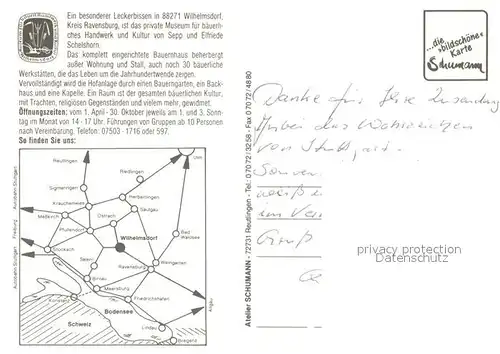 Ein besonderer Leckerbissen in 88271 Wilhelmsdorf,
Kreis Ravensburg, ist das private Museum für bäuerliches
Handwerk und Kultur von Sepp und Elfriede
Schelshorn.
Das komplett eingerichtete Bauernhaus beherbergt
außer Wohnung und Stall, auch noch 30 bäuerliche
Werkstätten, die das Leben um die Jahrhundertwende zeigen.
Vervollständigt wird die Hofanlage durch einen Bauerngarten, ein Backhaus
und eine Kapelle. Ein Raum ist der gesamten bäuerlichen Kultur,
mit Trachten, religiösen Gegenständen und vielem mehr, gewidmet.
Öffnungszeiten: vom 1. April - 30. Oktober jeweils am 1. und 3. Sonntag
im Monat von 14 - 17 Uhr. Führungen von Gruppen ab 10 Personen
nach Vereinbarung. Telefon: 07503 - 1716 oder 597.
So finden Sie uns:
Autobahn Stuttgart
Reutlingen
Ulm
Riedlingen
Sigmaringen
Herbertingen
Krauchenwies
Saulgau
Ostrach
Meßkirch
Freiburg
Pfullendorf
Wilhelmsdorf
Bad Waldsee
Stockach
Autobahn Stuttgart
Salem
Ravensburg
Weingarten
Birnau
Meersburg
Konstanz
Friedrichshafen
Allgäu
Bodensee
Schweiz
Lindau
Bregenz
Atelier SCHUMANN - 72731 Reutlingen - Tel.: 07072/3258 - Fax 07072/4880
...die
»bildschöne«
Karte
Schumann
Danke für Ihre Zusendung
von Stuttgart.
Gruß
privacy protection
Datenschutz